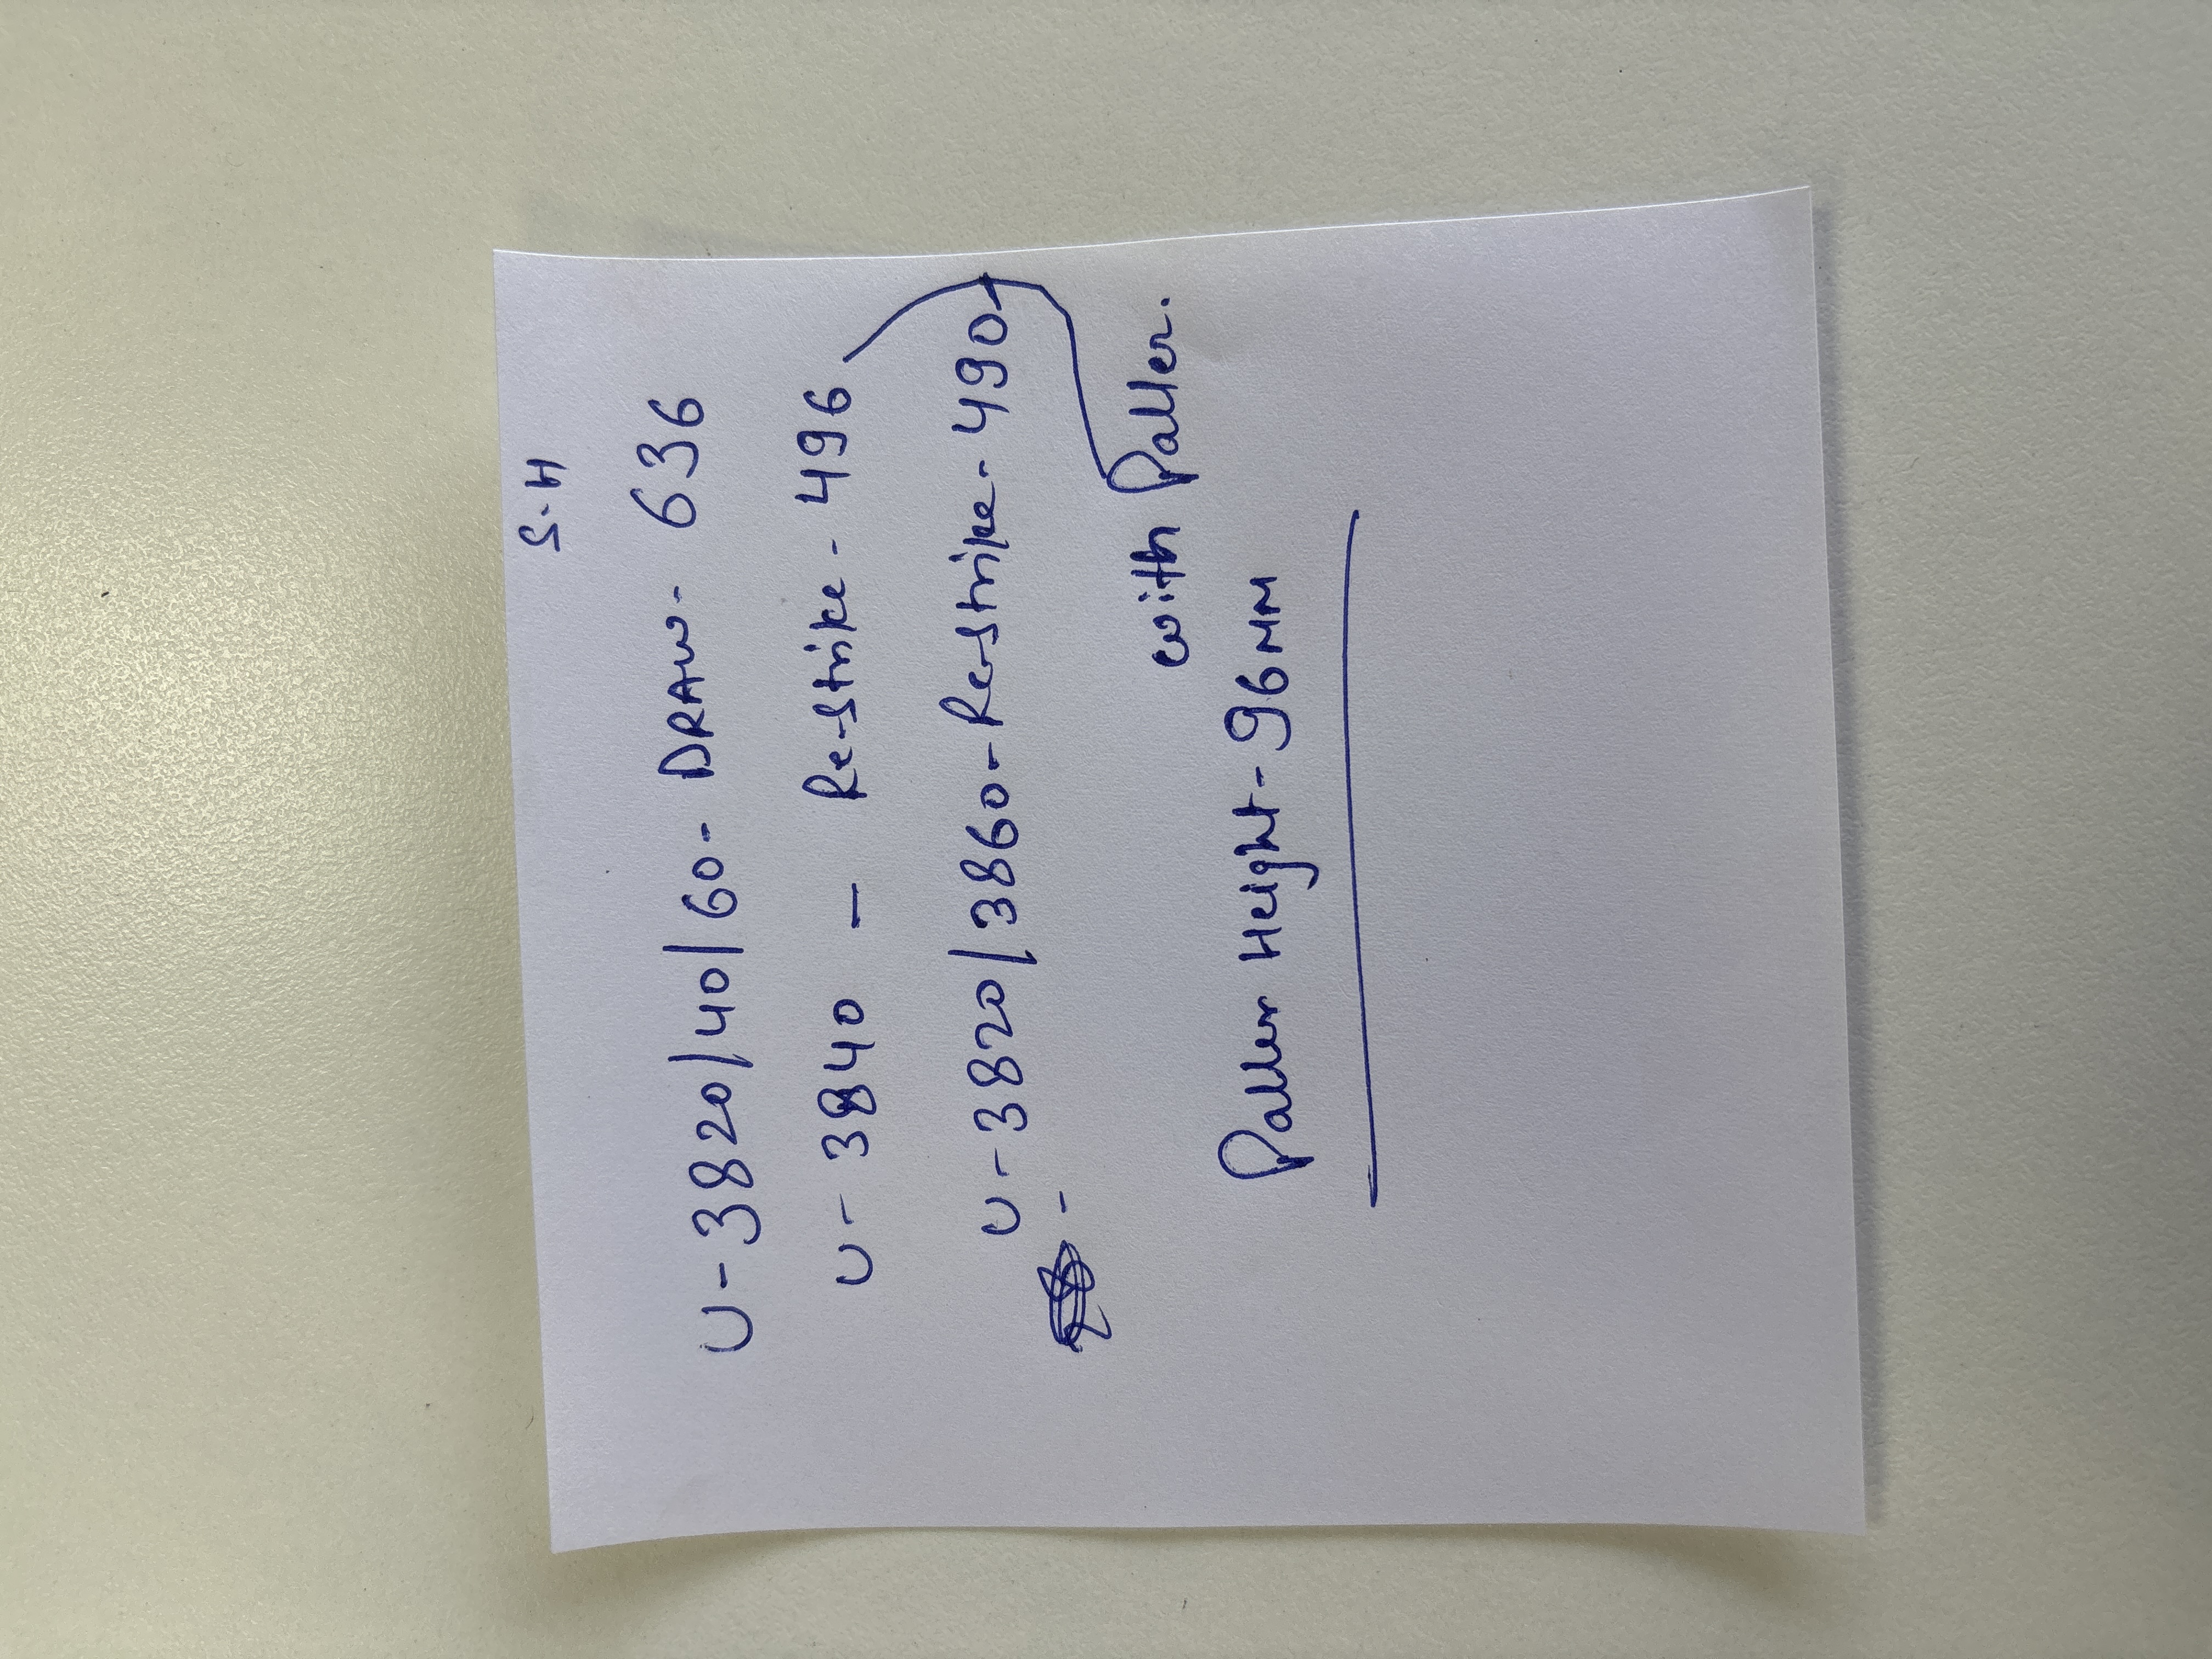 S-H
U-3820/40/60- DRAW- 636
U- 3840 - Re-Strike- 496
U-3820/3860-Re-Strike-490
-
with Paller.
Paller Height-96MM